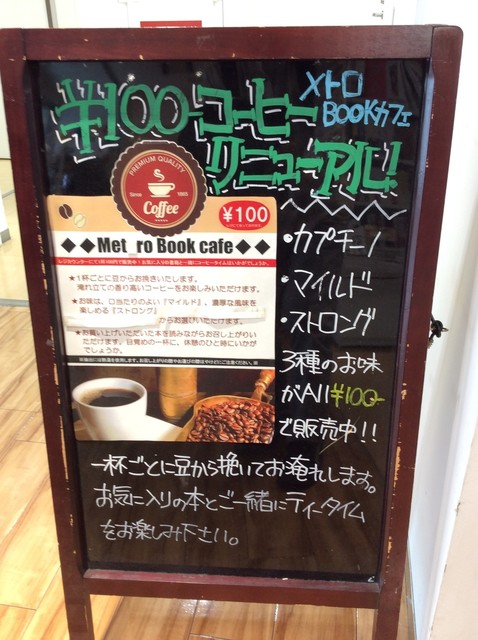 ¥100-コーヒー
リニューアル!
メトロ
BOOKカフェ
PREMIUM QUALITY
Since 1885
Coffee
¥100
◆◆Met_ro Book cafe◆◆
★1杯ごとに豆からお挽きいたします。
淹れ立ての香り高いコーヒーをお楽しみいただけます。
★お味は、口当たりのよい『マイルド』、濃厚な風味を
楽しめる『ストロング』
からお選びいただけます。
★お買い上げいただいた本を読みながらお召し上がりい
ただけます。目覚めの一杯に、休憩のひと時にいかが
でしょうか。
・カプチーノ
・マイルド
・ストロング
3種のお味
がAll ¥100-
で販売中!!
一杯ごとに豆から挽いてお淹れします。
お気に入りの本とご一緒にティータイム
をお楽しみ下さい。